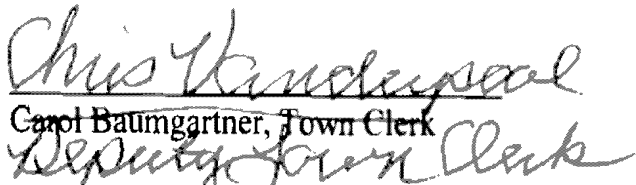 Chris Vanderpool
Carol Baumgartner, Town Clerk
Deputy Town Clerk